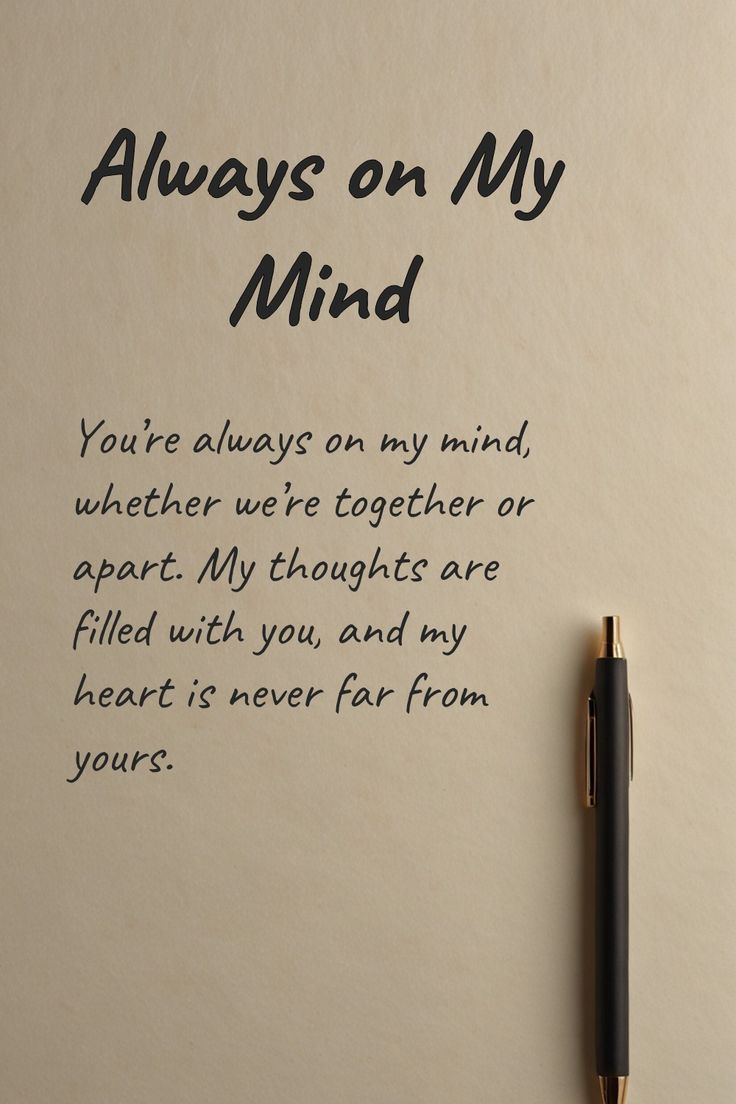 Always on My
Mind
You’re always on my mind,
whether we’re together or
apart. My thoughts are
filled with you, and my
heart is never far from
yours.